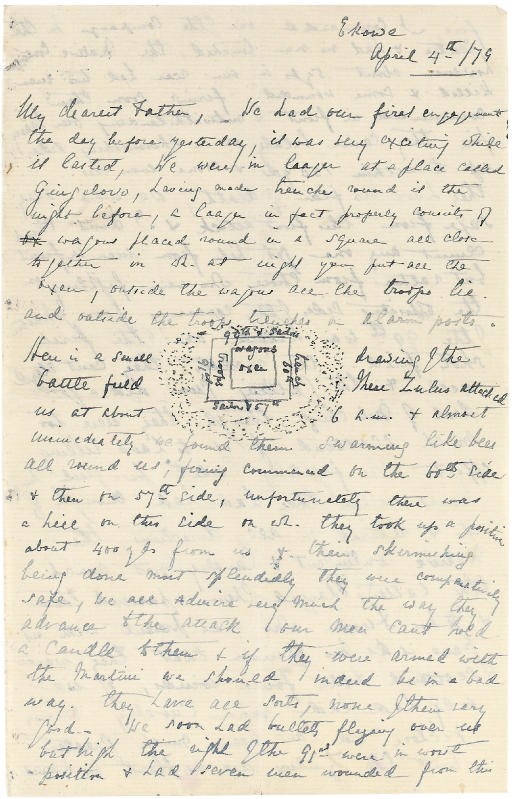 Ekowe
April 4th/79
My dearest Father, We had our first engagement
the day before yesterday, it was very exciting while
it lasted, We were in laager at a place called
Gingelovo, having made trenche round it the
night before, a laager in fact properly consists of
wagons placed round in a square all close
together in wh. at night you put all the
oxen, outside the wagons all the troops lie
and outside the troops trenches on alarm posts.
Here is a small drawing of the
battle field These Zulus attacked
us at about 6 a.m. & almost
99th & Sailors
wagons
oxen
91st
60th
Sailors 57th
immediately we found them swarming like bees
all round us, firing commenced on the 60th side
& then on 57th side, unfortunately there was
a hill on this side on wh. they took up a position
about 400 yds from us & their skirmishing
being done most splendidly they were comparatively
safe, We all admire very much the way they
advance to the attack our men cant hold
a candle to them & if they were armed with
the Martini we should indeed be in a bad
way. they have all sorts none of them very
good. We soon had bullets flying over us
but high the right of the 91st were in worst
position & had seven men wounded from this